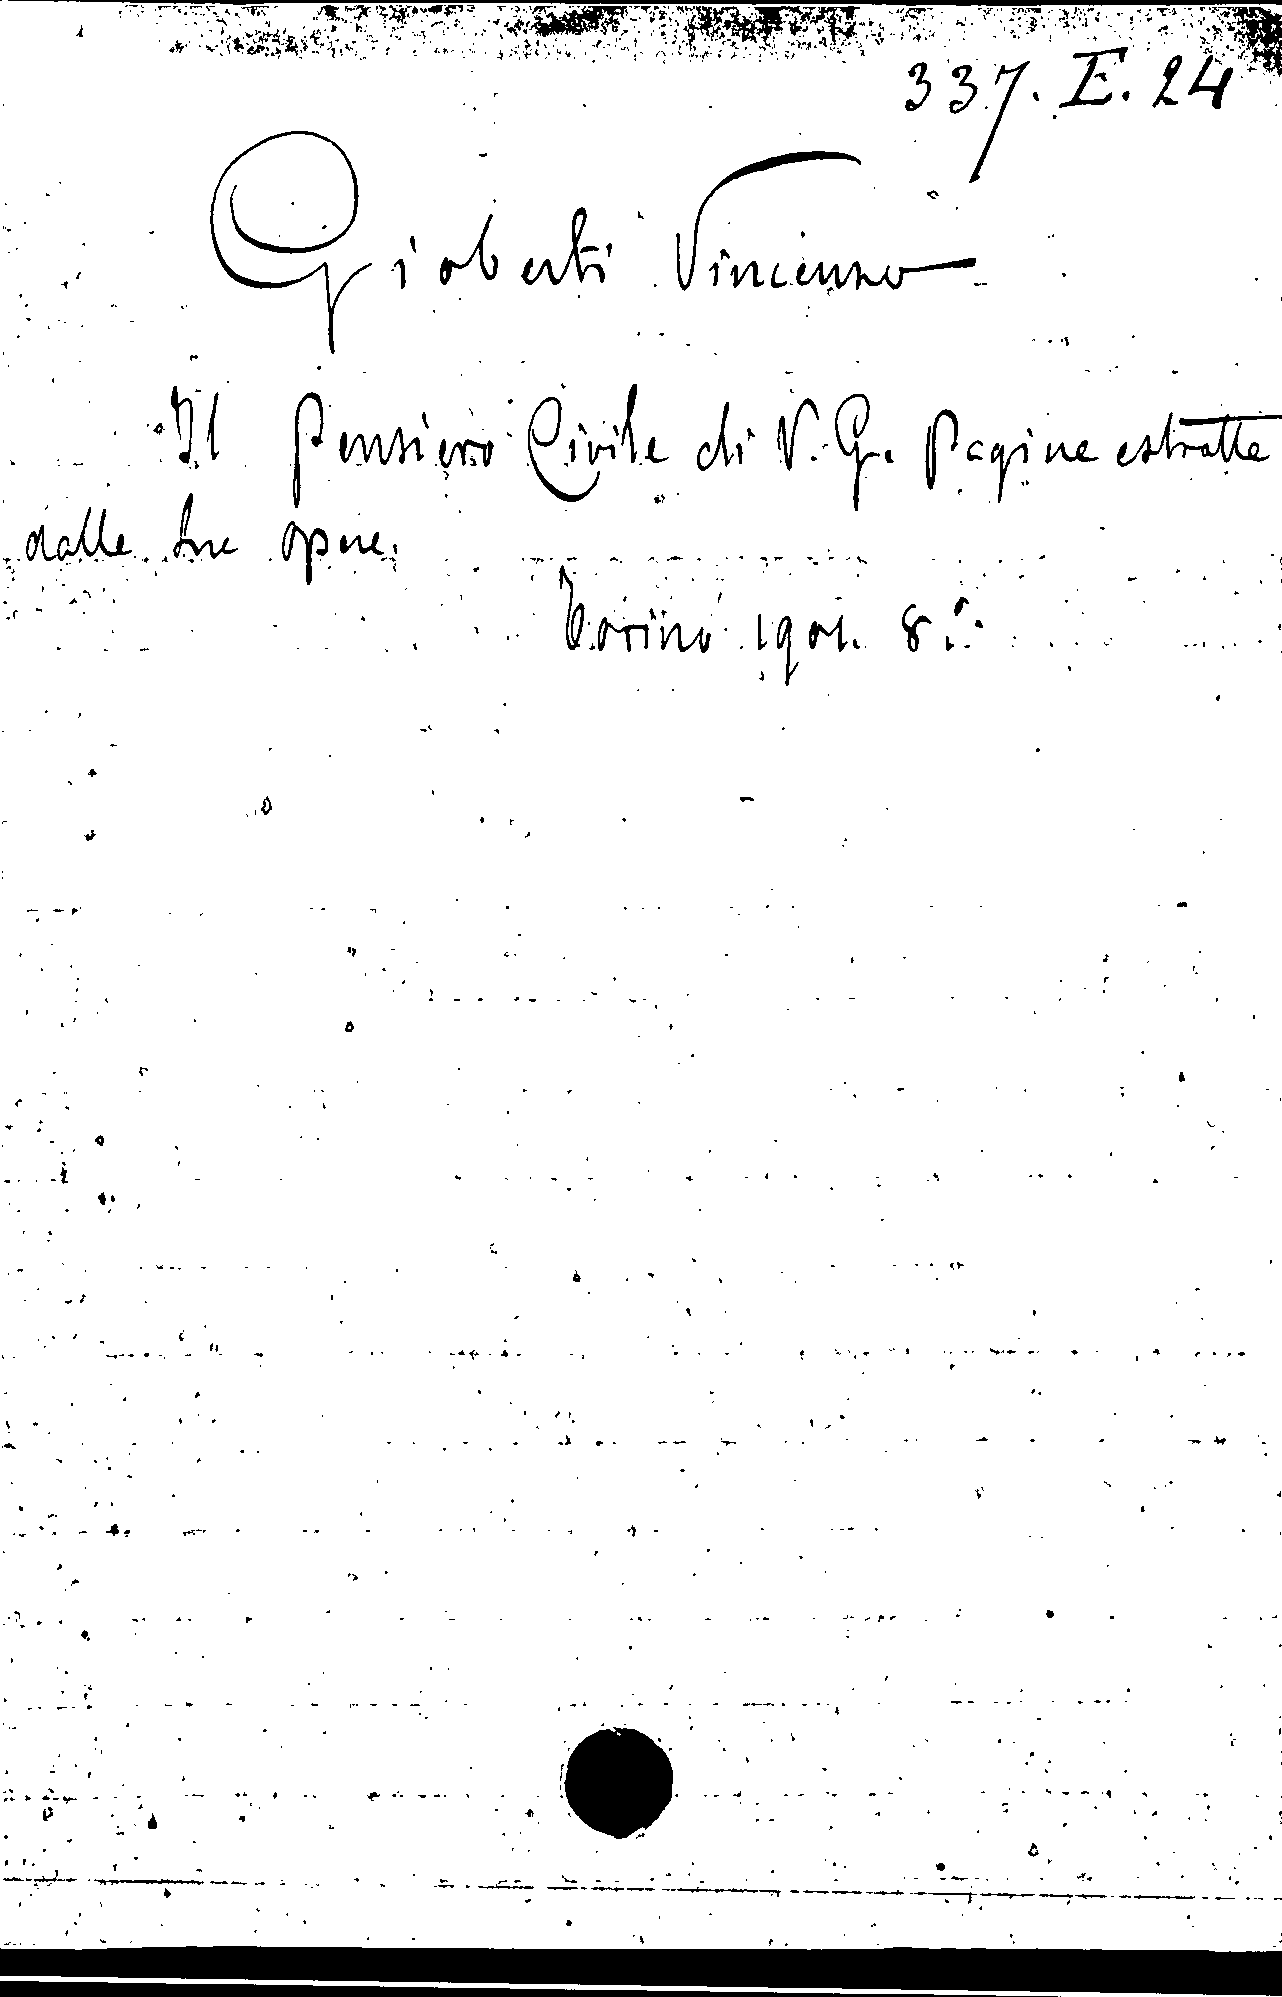 337. E. 24
Gioberti Vincenzo
Il Pensiero Civile di V. G. Pagine estratte
dalle sue opere.
Torino 1901. 8.º